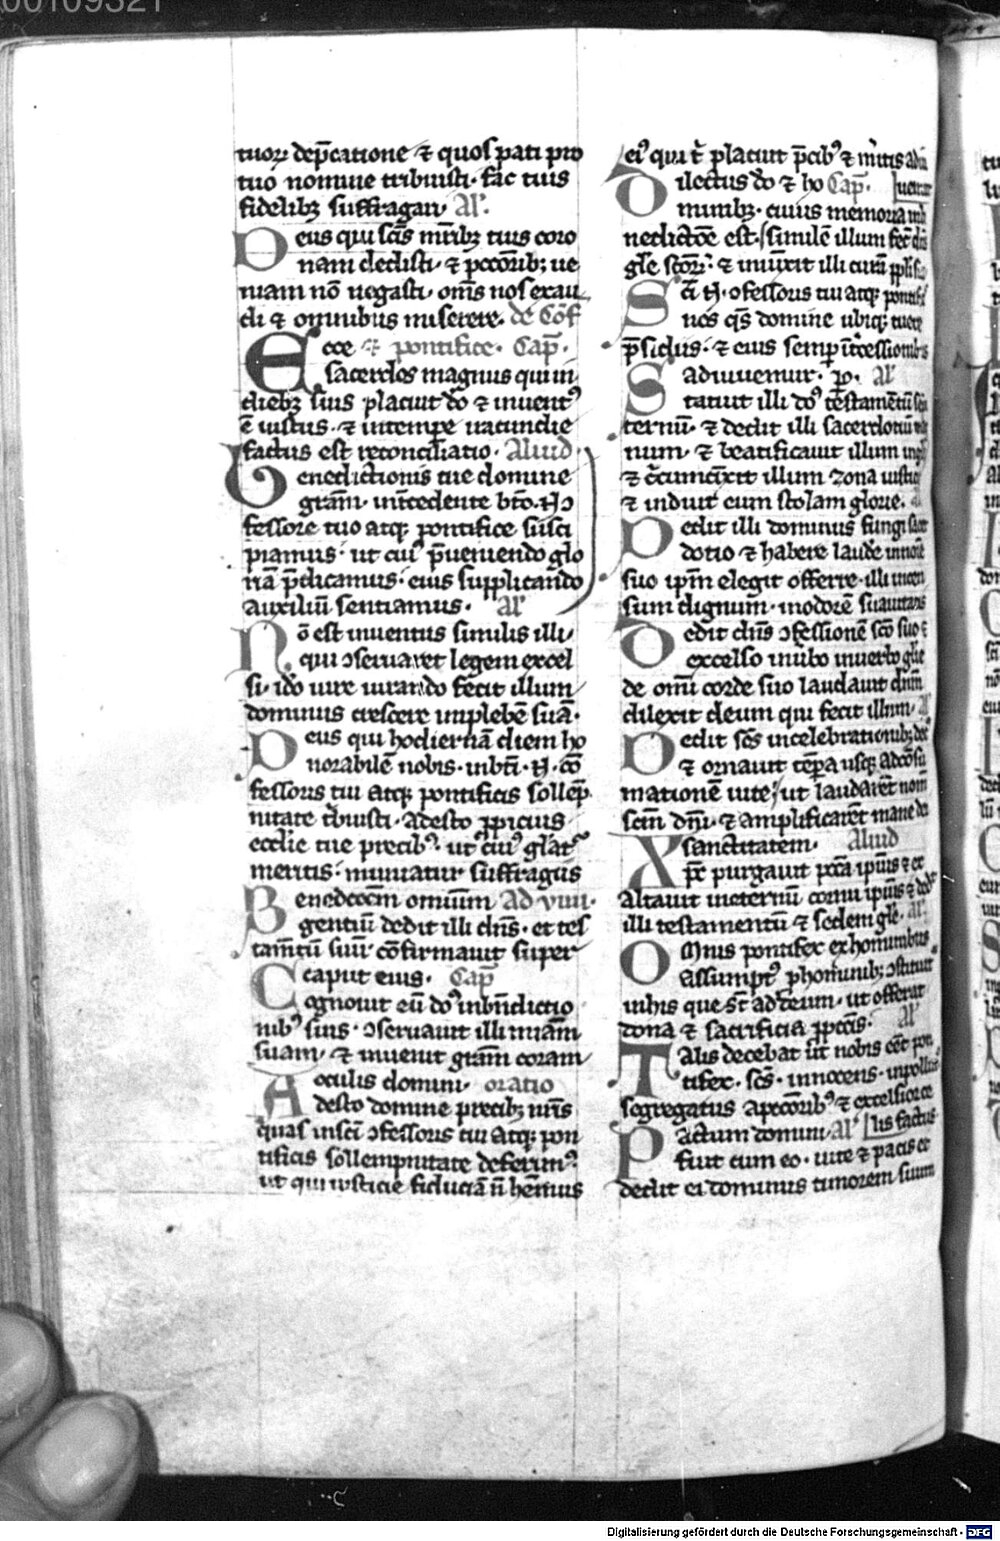 00109321
tuoꝝ dep̄catione ⁊ quos pati pro
tuo nomine tribuisti· fac tuis
fidelibꝫ suffragari· Al'·
Deus qui sc̄is mr̄ibꝫ tuis coro
nam dedisti· ⁊ pccōrib; ue
niam nō negasti· om̄s nos exau
di ⁊ omnibus miserere· de Cōf
Ecce pontifice· Cap̄·
sacerdos magnus qui in
diebꝫ suis placuit dō ⁊ inuent᾽
ē iustus· ⁊ in tempe iracundie
factus est reconciliatio· Aliud
Benedictionis tue domine
grām· int̄cedente bt̄o· N· ↄ
fessore tuo atqꝫ pontifice susci
piamus· ut cui᾽ p̄ueniendo glo
riā p̄dicamus· eius supplicando
auxiliū sentiamus· al'
Nō est inuentus similis illi·
qui ↄseruaret legem excel
si· idō iure iurando fecit illum
dominus crescere in plebē suā·
Deus qui hodiernā diem ho
norabilē nobis· in bt̄i· N· cō
fessoris tui atqꝫ pontificis sollēp
nitate tͥbuisti· adesto ꝓpicius
eccłie tue precib᾽· ut cui᾽ glāt᾽
meritis· muniatur suffragiis
Benedcōem omnium Ad viiii·
gentiū dedit illi dn̄s· et tes
tamt̄ū suū· cōfirmauit super
caput eius· Cap̄
Cognouit eū dō᾽ in bn̄dictio
nib᾽ suis· ↄseruauit illi mi̅am
suam· ⁊ inuenit grām coram
oculis domini· oratio
Adesto domine precibꝫ nr̄is
quas in sci ↄfessoris tui atqꝫ pon
tificis sollempnitate deferim᾽·
ut qui iusticie fiduciā n̄ hēmus
ei᾽ qui t̄ placuit p̄cib᾽ ⁊ mͥtis adiu
Dilectus dō ⁊ ho Cap̄· uemur
minibꝫ· cuius memoria in b
nedictōe est· similē illum fec̄ dn̄s
gl̄e
Sc̄i N· ↄfessoris tui atqꝫ pontifi
nos q̄s domine ubiqꝫ tuere
p̄sidiis· ⁊ eius semp int̄cessionib᾽
adiuuemur· p· al'
Statuit illi dō᾽ testamētū sē
ternū· ⁊ dedit illi sacerdotiū
num· ⁊ beatificauit illum in gl
⁊ cͥcumcīxit illum zona iustic
⁊ induit eum stolam glorie·
Dedit illi dominus fungi sacͥ
dotio ⁊ habere laudē in noīe
suo ip̄m elegit offerre· illi incen
sum dignum· in odorē suauitatis
Dedit dn̄s ↄfessionē scō suo ⁊
excelso in ūbo
de omī corde suo laudauit dn̄m
dilexit deum qui fecit illum· al
Dedit sc̄s in celebrationib; dec
⁊ ornauit tēpa usqꝫ ad cōsū
mationē uite; ut laudarēt nom̄
scm̄ dn̄i· ⁊ amplificarēt mane dei
sanctitatem· Aliud
Xp̄c purgauit pccā ipius ⁊ ex
altauit in eternū cornu ipius ⁊ ded
illi testamentū ⁊ sedem gl̄e· al'·
Omnis pontifex ex hominibus
assumpt᾽ ꝓ hominib; ↄstituit
in his que st̄ ad deum· ut offerat
dona ⁊ sacrificia ꝓ pccīs· al'
Talis decebat ut nobis ēēt pon
tifex· sc̄s· innocens· inpollut᾽
segregatus a pccōrib᾽ ⁊ excelsior ce
Pactum domini al' lis factus
fuit cum eo· uite ⁊ pacis et
dedit ei dominus timorem suum
Digitalisierung gefördert durch die Deutsche Forschungsgemeinschaft - DFG